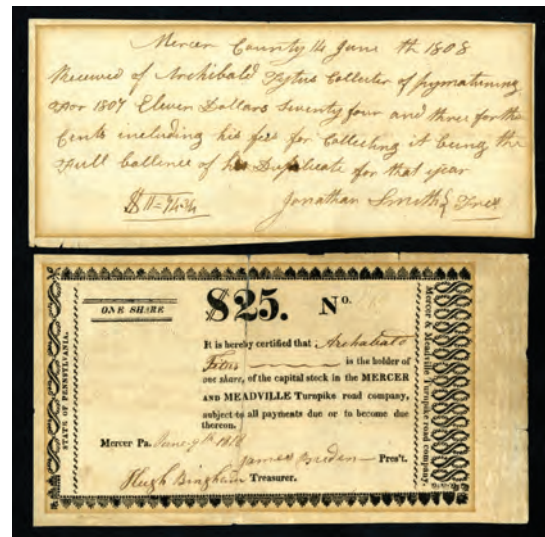 Mercer County 14 June th 1808
Received of Archibald Tytus Collecter of pymatuning
For 1807 Eleven Dollars Seventy four and three forths
Cents including his fees for Collecting it being the
Full ballence of his Duplicate for that year
$11=74¾ Jonathan Smith Tres
ONE SHARE
$25. No.
It is hereby certified that Archabald
Titus is the holder of
one share, of the capital stock in the MERCER
AND MEADVILLE Turnpike road company,
subject to all payments due or to become due
thereon.
Mercer Pa. June 9th 1818
James Breden Pres't.
Hugh Bingham Treasurer.
STATE OF PENNSYLVANIA.
Mercer & Meadville Turnpike road company.